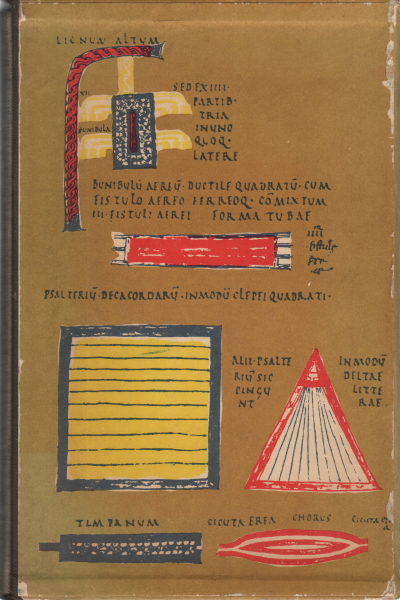 LIGNUM ALTUM
SED EX IIII·
PARTIB·
TRIA
IN UNO
QUOQ·
LATERE
BUNIBULA
BUNIBULŪ AEREŪ· DUCTILE QUADRATŪ· CUM
FISTULO AEREO FERREOQ· CŌMIXTUM
III· FISTULI AEREI FORMA TUBAE
IIII
fistule
PSALTERIŪ· DECACORDARŪ· IN MODŪ CLEPEI QUADRATI·
ALII· PSALTE
RIŪ SIC
PINGU
NT
IN MODŪ
DELTAE
LITTE
RAE
TIMPANUM
CICUTA EREA
CHORUS
CICUTA